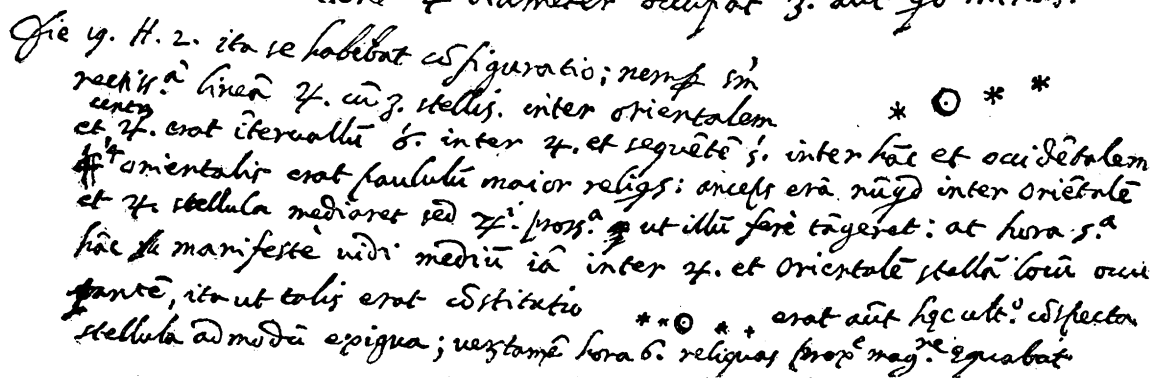 ♃ diameter occupat 3.
Die 19. H. 2. ita se habebat cōfiguratio; nemp̱ sm̄
rectiss.ᵃ lineā ♃. cū 3. stellis. inter orientalem
centrū
et ♃. erat ītervallū 6'. inter ♃. et sequētē 5'. inter hāc et occidētalem
4' orientalis erat paululū maior reliqs: anceps erā nūqd inter oriētalē
et ♃. stellula mediaret sed ♃ⁱ. prox.ᵃ ut illū ferè tāgeret: at hora 5.ᵃ
hāc manifestè uidi mediū iā inter ♃. et Orientalē stellā locū occu
pantē, ita ut talis erat cōstitutio erat aūt hęc ult.º cōspecta
stellula admodū exigua; verūtamē hora 6. reliquas propᵉ mag.ⁿᵉ equabat